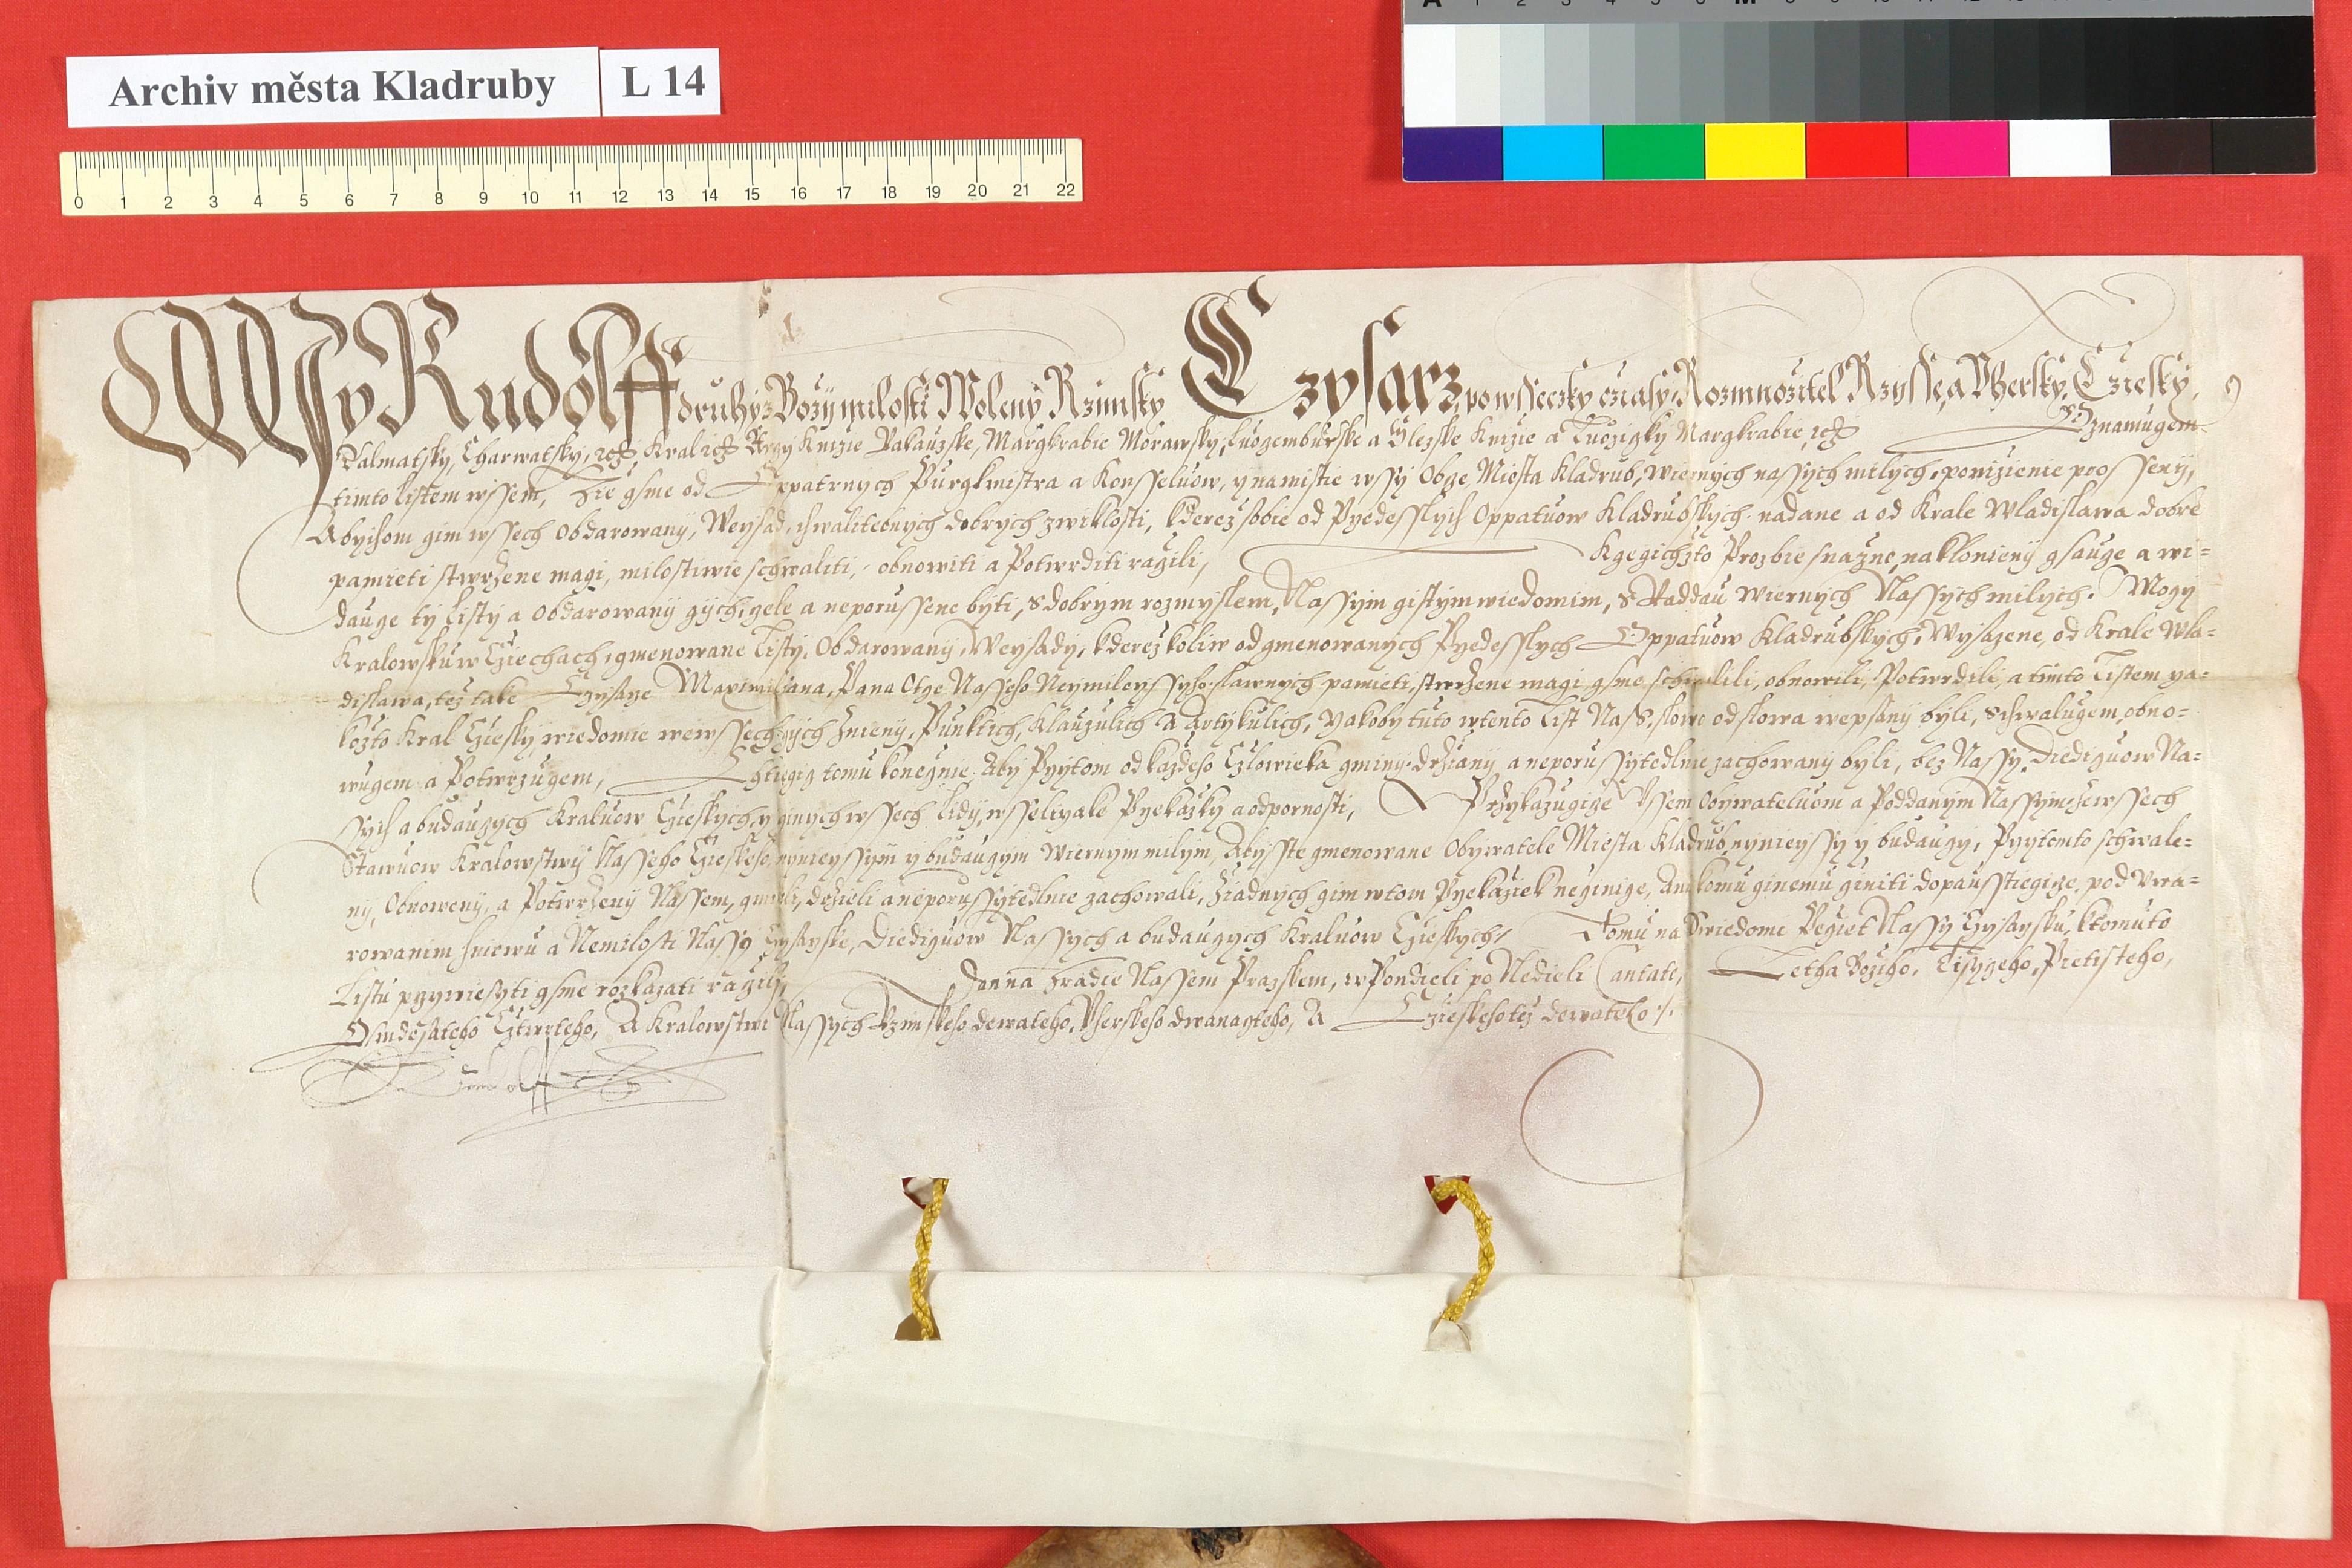 A 1 2 3 4 5 6 M 8 9 10 11 12 13
Archiv města Kladruby L 14
0 1 2 3 4 5 6 7 8 9 10 11 12 13 14 15 16 17 18 19 20 21 22
My Rudolff druhý z Božy milosti Woleny Rzimsky Czysarz, powsseczky cziasy Rozmnožitel Rzysse, a Vhersky, Cziesky,
Dalmatsky, Charwatsky, Kral Knize Rakauzske, Margkrabie Morawsky, Luczemburske a Slezske Knize a Luozigky Margkrabie, Oznamugem
timto listem wssem, Zie gsme od Oppatrnych Purgkmistra a Konsseluow, y na mistie wssy Obcze Miesta Kladrub, wiernych nassych milych, ponizienie prosseny,
Abychom gim wssech Obdarowany, Weysad, chwalitebnych dobrych zwiklosti, kderez sobie od PRzedesslych Oppatuow Kladrubskych nadane a od Krale Wladislawa dobre
pamieti stwrzene magi, milostiwie schwaliti, obnowiti a Potwrditi raczili, K gegichzto Prozbie snazne naklonieny gsauce a wi=
dauce ty Listy a Obdarowany gich, czele a neporussene byti, s dobrym rozmyslem, Nassym gistym wiedomim, s Raddau wiernych Nassych milych. Moczy
Kralowsku w Cziechach, gmenowane Listy, Obdarowany, Weysady, kderez koliw od gmenowanych Przedesslych Oppatuow Kladrubskych, Wysazene, od Krale Wla=
dislawa, tez take Czysarze Maximiliana, Pana Otcze Nasseho Neymileyssyho slawnych pamieti, stwrzene magi gsme schwalili, obnowili, Potwrdili, a timto Listem ya=
kozto Kral Cziesky, wiedomie we wssech gich Znieny, Punktich, Klauzulich a Artykulich, Yakoby tuto w tento List Nass, slowo od slowa wepsany byli, schwalugem, obno=
wugem a Potwrzugem, Chticzicz tomu koneczne, Aby Przytom od kazdeho Czlowieka gminy, drziany a neporussytedlnie zachowany byli, bez Nassy, Diedicuow Na=
ssych a budauczych Kraluow Czieskych, y ginych wssech Lidy, wsseliyake Przekazky a odpornosti, Przykazugicze Wssem Obywateluom a Poddanym Nassym, ze wssech
Stawuow Kralowstwy Nasseho Czieskeho, nynieyssym y budauczym wiernym milym, Abysste gmenowane Obywatele Miesta Kladrub, nynieyssy y budauczy, Przy tomto schwale=
ny, Obnoweny, a Potwrzeny Nassem, gmieli, drzieli a neporussytedlnie zachowali, Ziadnych gim w tom Przekaziek neczinicze, Ani komu ginemu cziniti dopausstiegicze, pod Vwa=
rowanim hniewu a Nemilosti Nassy Czysarzske, Diedicuow Nassych a budauczych Kraluow Czieskych, Tomu na Swiedomi Peczet Nassy Czysarzsku, k tomuto
Listu przywiesyti gsme rozkazati raczili, Dan na Hradie Nassem Prazskem, w Pondieli po Nedieli Cantate, Letha Bozieho, Tisyczeho, Pietisteho,
Osmdesateho Cztwrteho, A Kralowstwi Nassych Rzimskeho dewateho, Vherskeho dwanacteho, A Czieskeho tez dewateho.
Rudolff